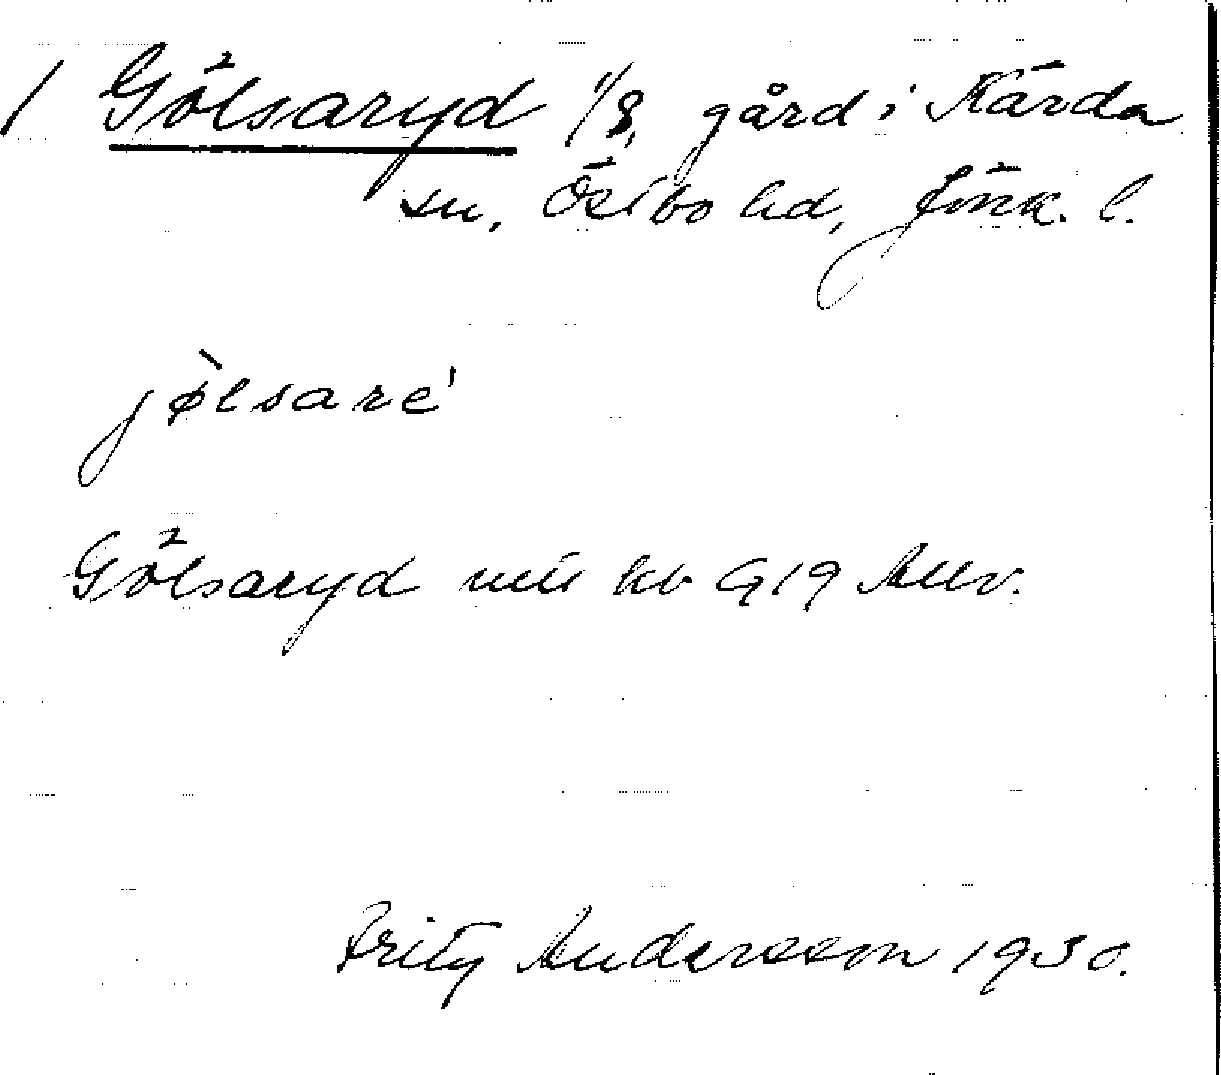 / Gölsaryd 1/8, gård i Kärda
sn, Östbo hd, Jönk. l.
jø̀lsaré
Gölsaryd kb 1919
Fritz Andersson 1930.